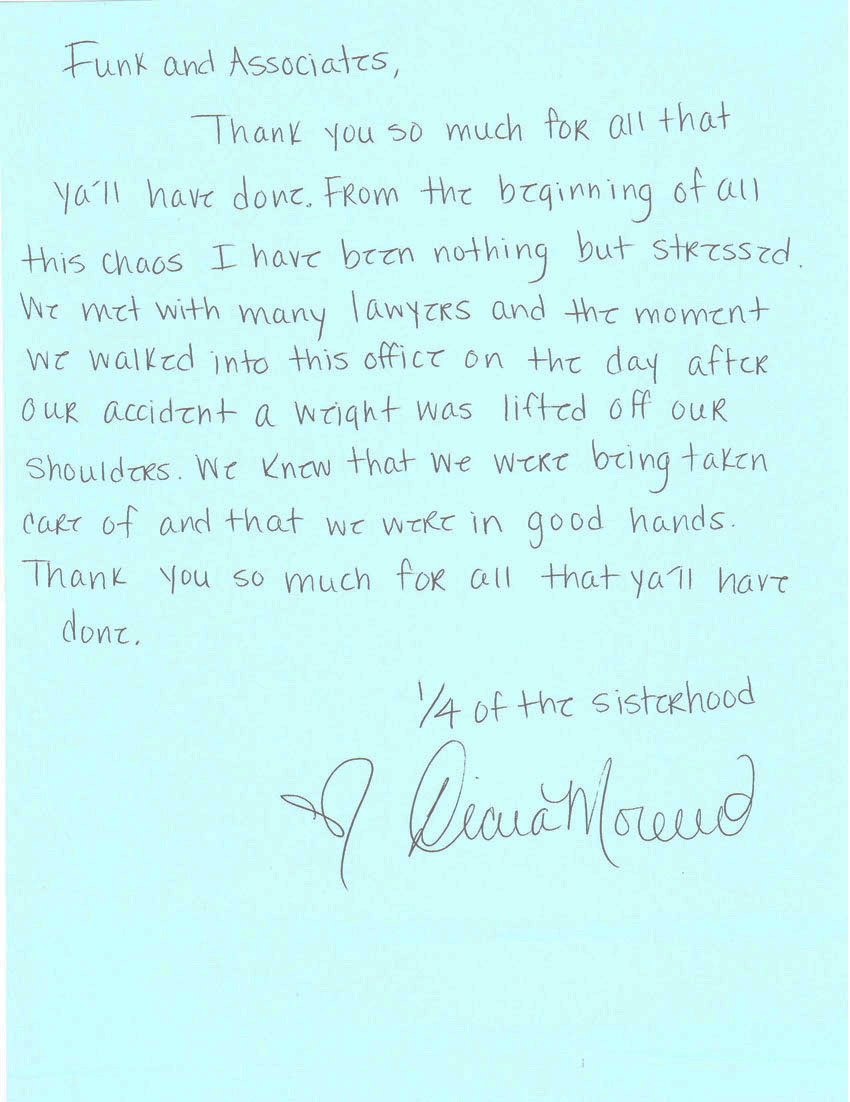 Funk and Associates,
Thank you so much for all that
ya'll have done. From the beginning of all
this chaos I have been nothing but stressed.
We met with many lawyers and the moment
we walked into this office on the day after
our accident a weight was lifted off our
shoulders. We knew that we were being taken
care of and that we were in good hands.
Thank you so much for all that ya'll have
done.
1/4 of the sisterhood
Diana Moreno